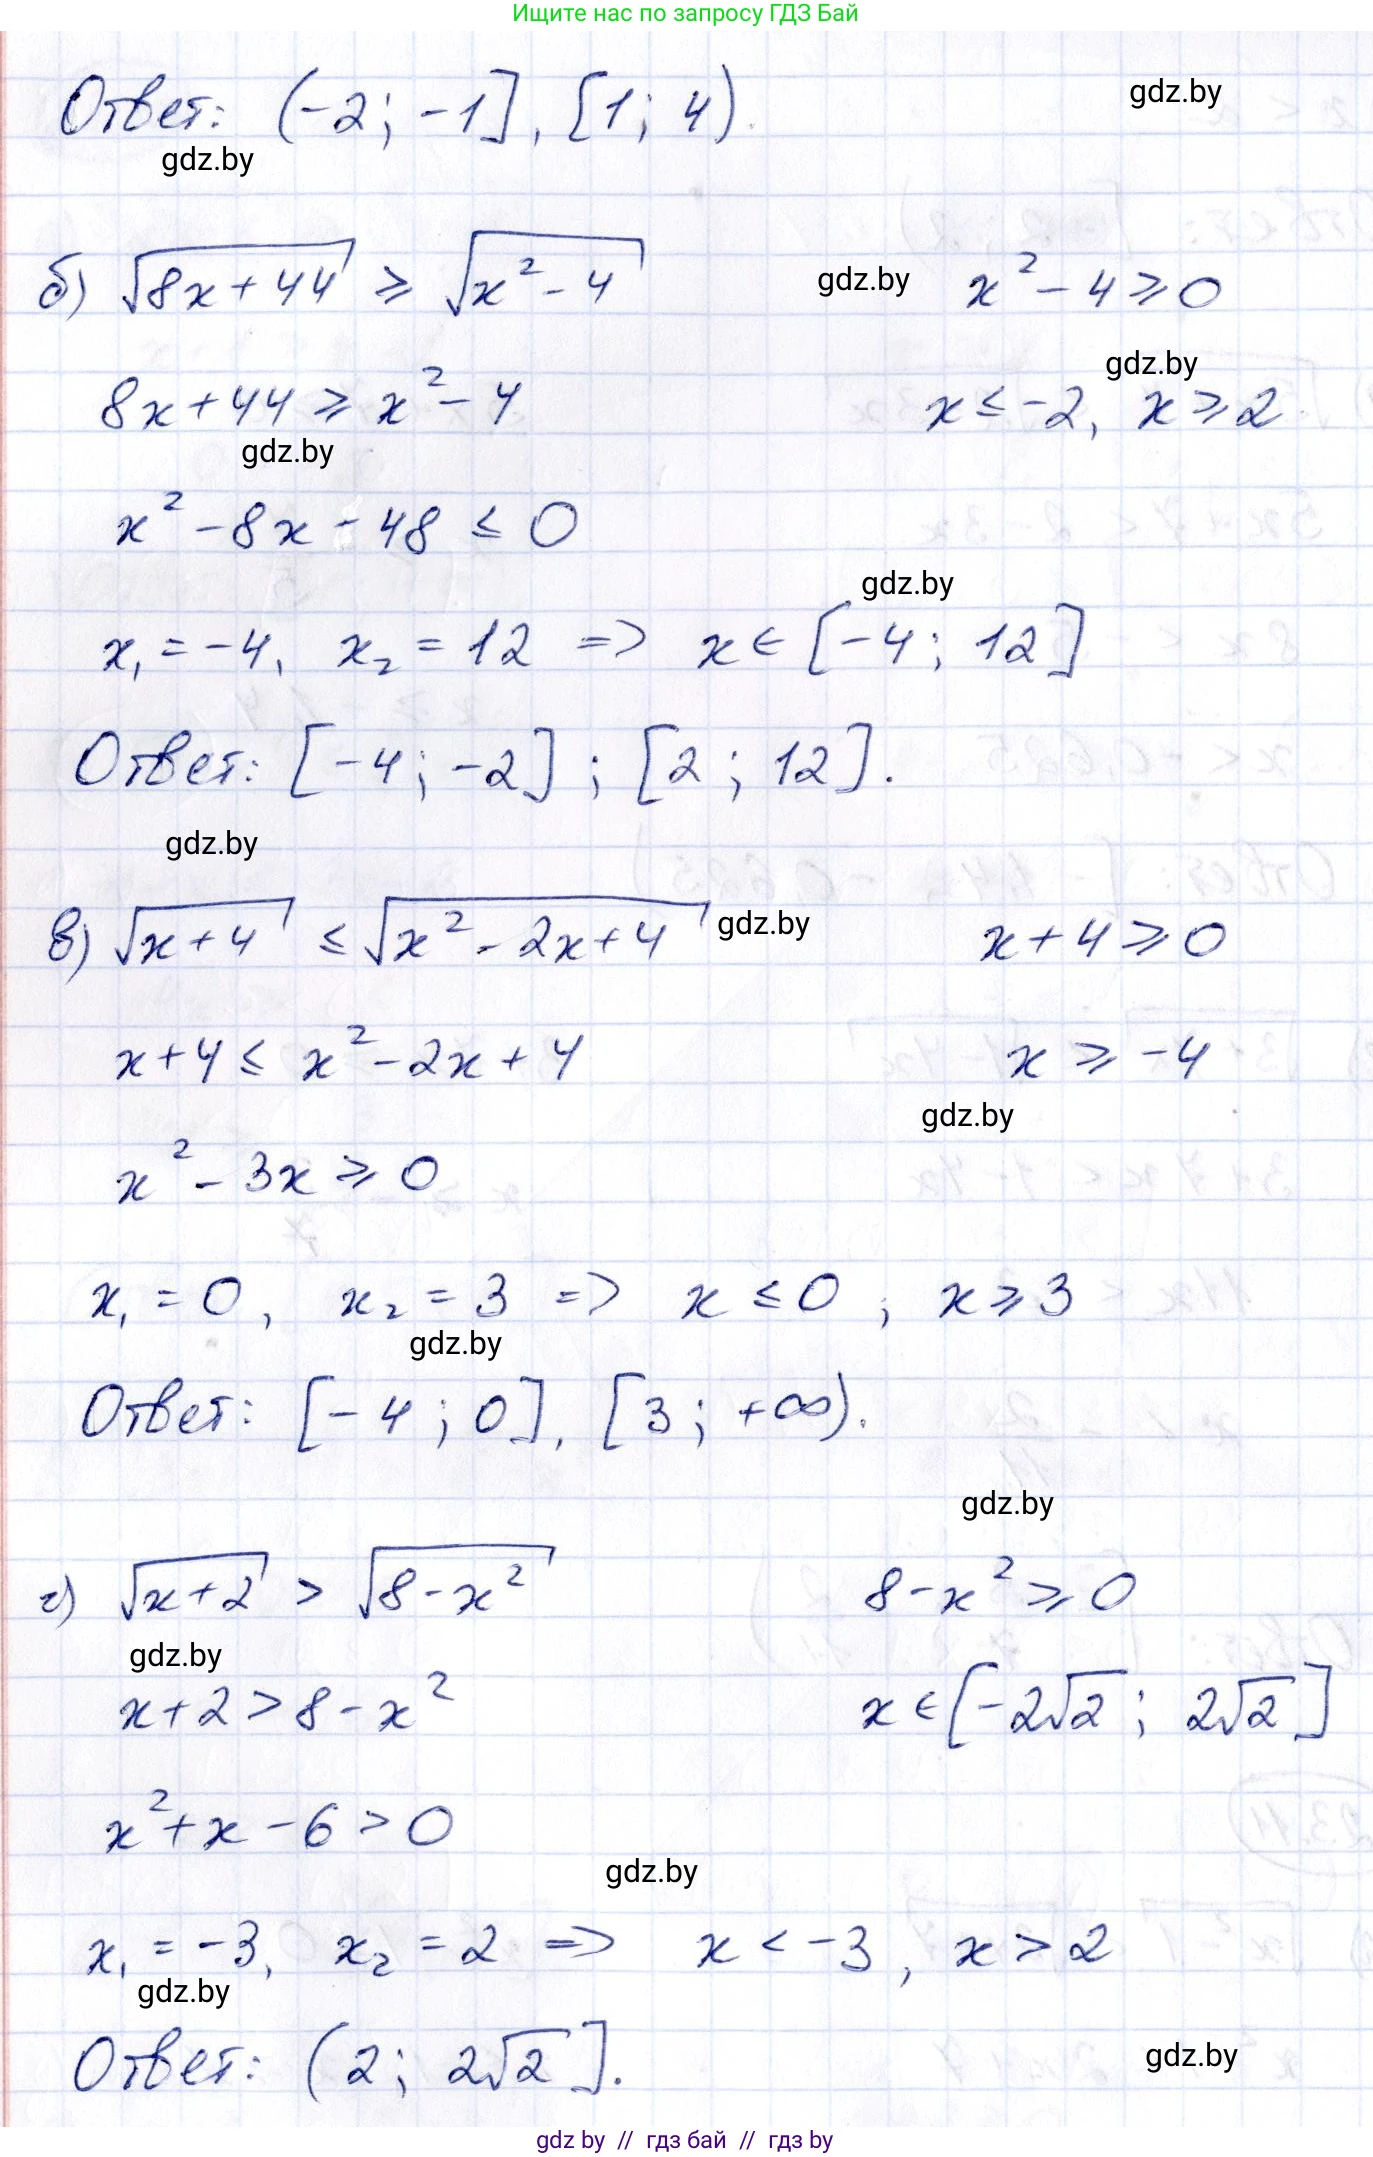 Ищите нас по запросу ГДЗ Бай
Ответ: (-2; -1], [1; 4).
gdz.by
gdz.by
б) √(8x+44) ≥ √(x²-4)
gdz.by
x²-4≥0
8x+44 ≥ x²-4
gdz.by
x≤-2, x≥2
gdz.by
x²-8x-48 ≤ 0
gdz.by
x₁=-4, x₂=12 => x∈[-4; 12]
Ответ: [-4; -2]; [2; 12].
gdz.by
в) √(x+4) ≤ √(x²-2x+4)
gdz.by
x+4≥0
x+4≤ x²-2x+4
x ≥ -4
gdz.by
x²-3x≥0
x₁=0, x₂=3 => x≤0; x≥3
gdz.by
Ответ: [-4; 0], [3; +∞).
gdz.by
г) √(x+2) > √(8-x²)
8-x²≥0
gdz.by
x+2>8-x²
x∈[-2√2; 2√2]
x²+x-6>0
gdz.by
x₁=-3, x₂=2 => x<-3, x>2
gdz.by
Ответ: (2; 2√2].
gdz.by
gdz by // гдз бай // гдз by